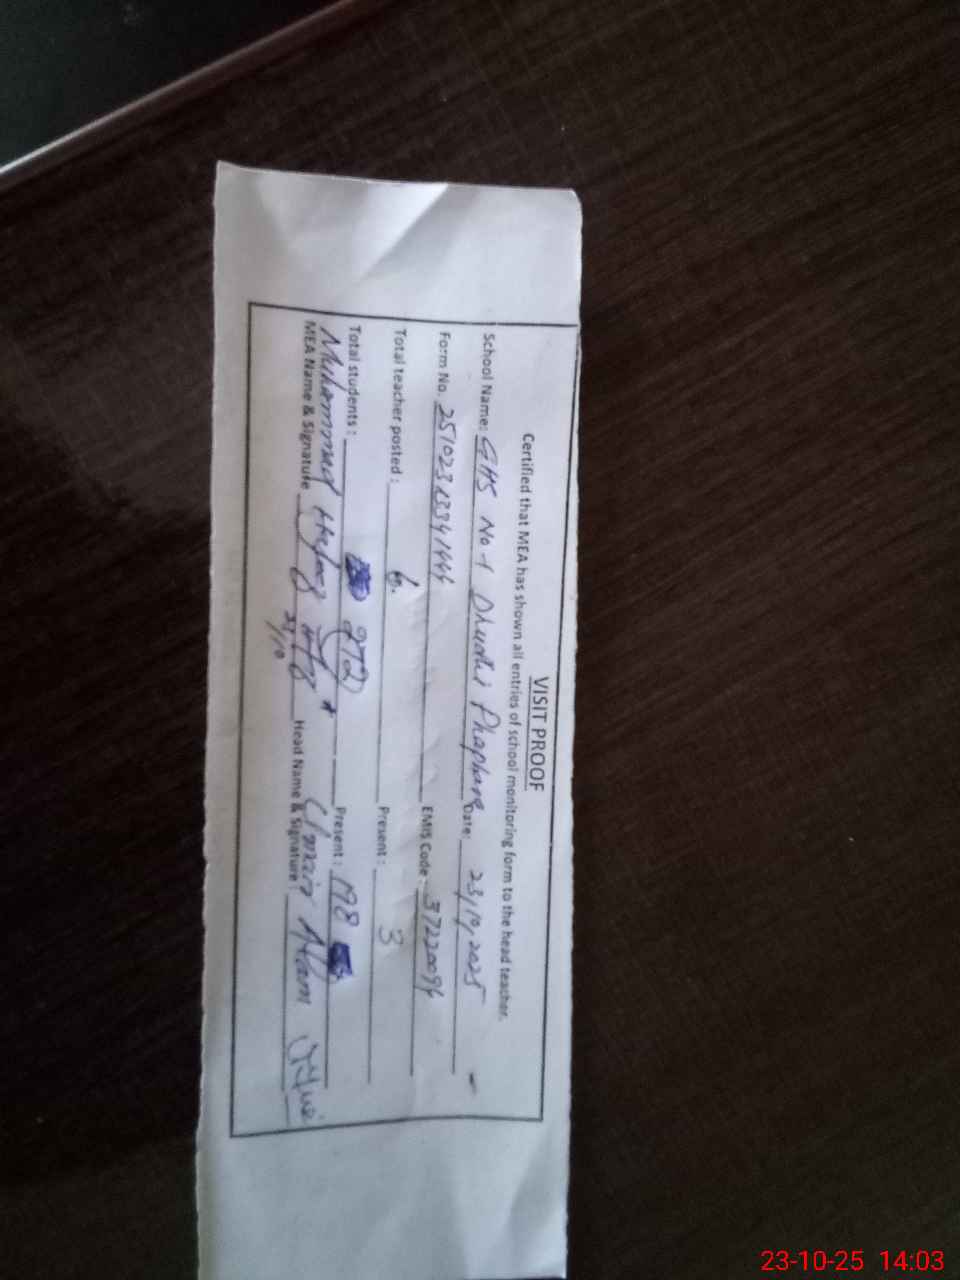 VISIT PROOF
Certified that MEA has shown all entries of school monitoring form to the head teacher.
School Name: GHS No 1 Dhudhi Phaphara Date: 23/10/2025
Form No. 25102313341444 EMIS Code: 37220094
Total teacher posted: 6. Present: 3
Total students: 272 Present: 198
Muhammad
MEA Name & Signature 23/10 Head Name & Signature: Alam
23-10-25 14:03